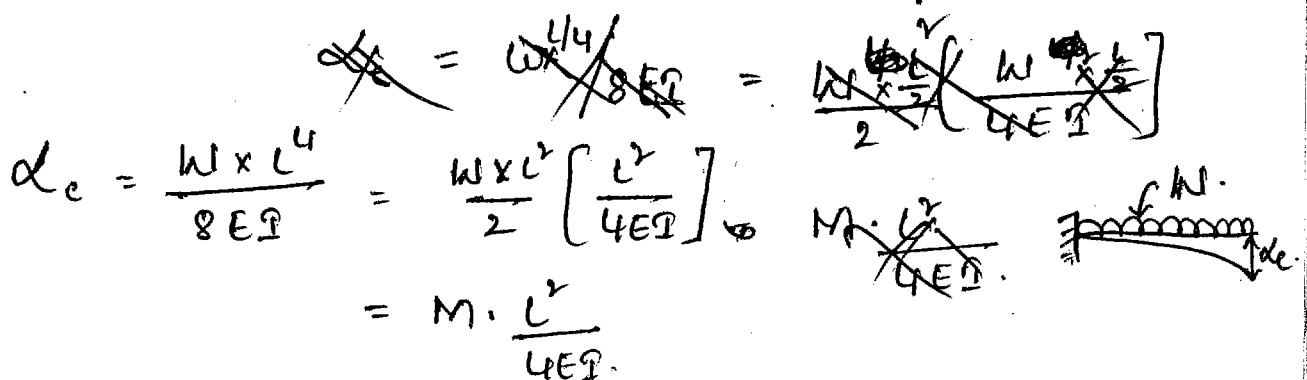 αc = W × L⁴ / 8EI = W × L² / 2 [ L² / 4EI ]
W.
αc.
= M. L² / 4EI.